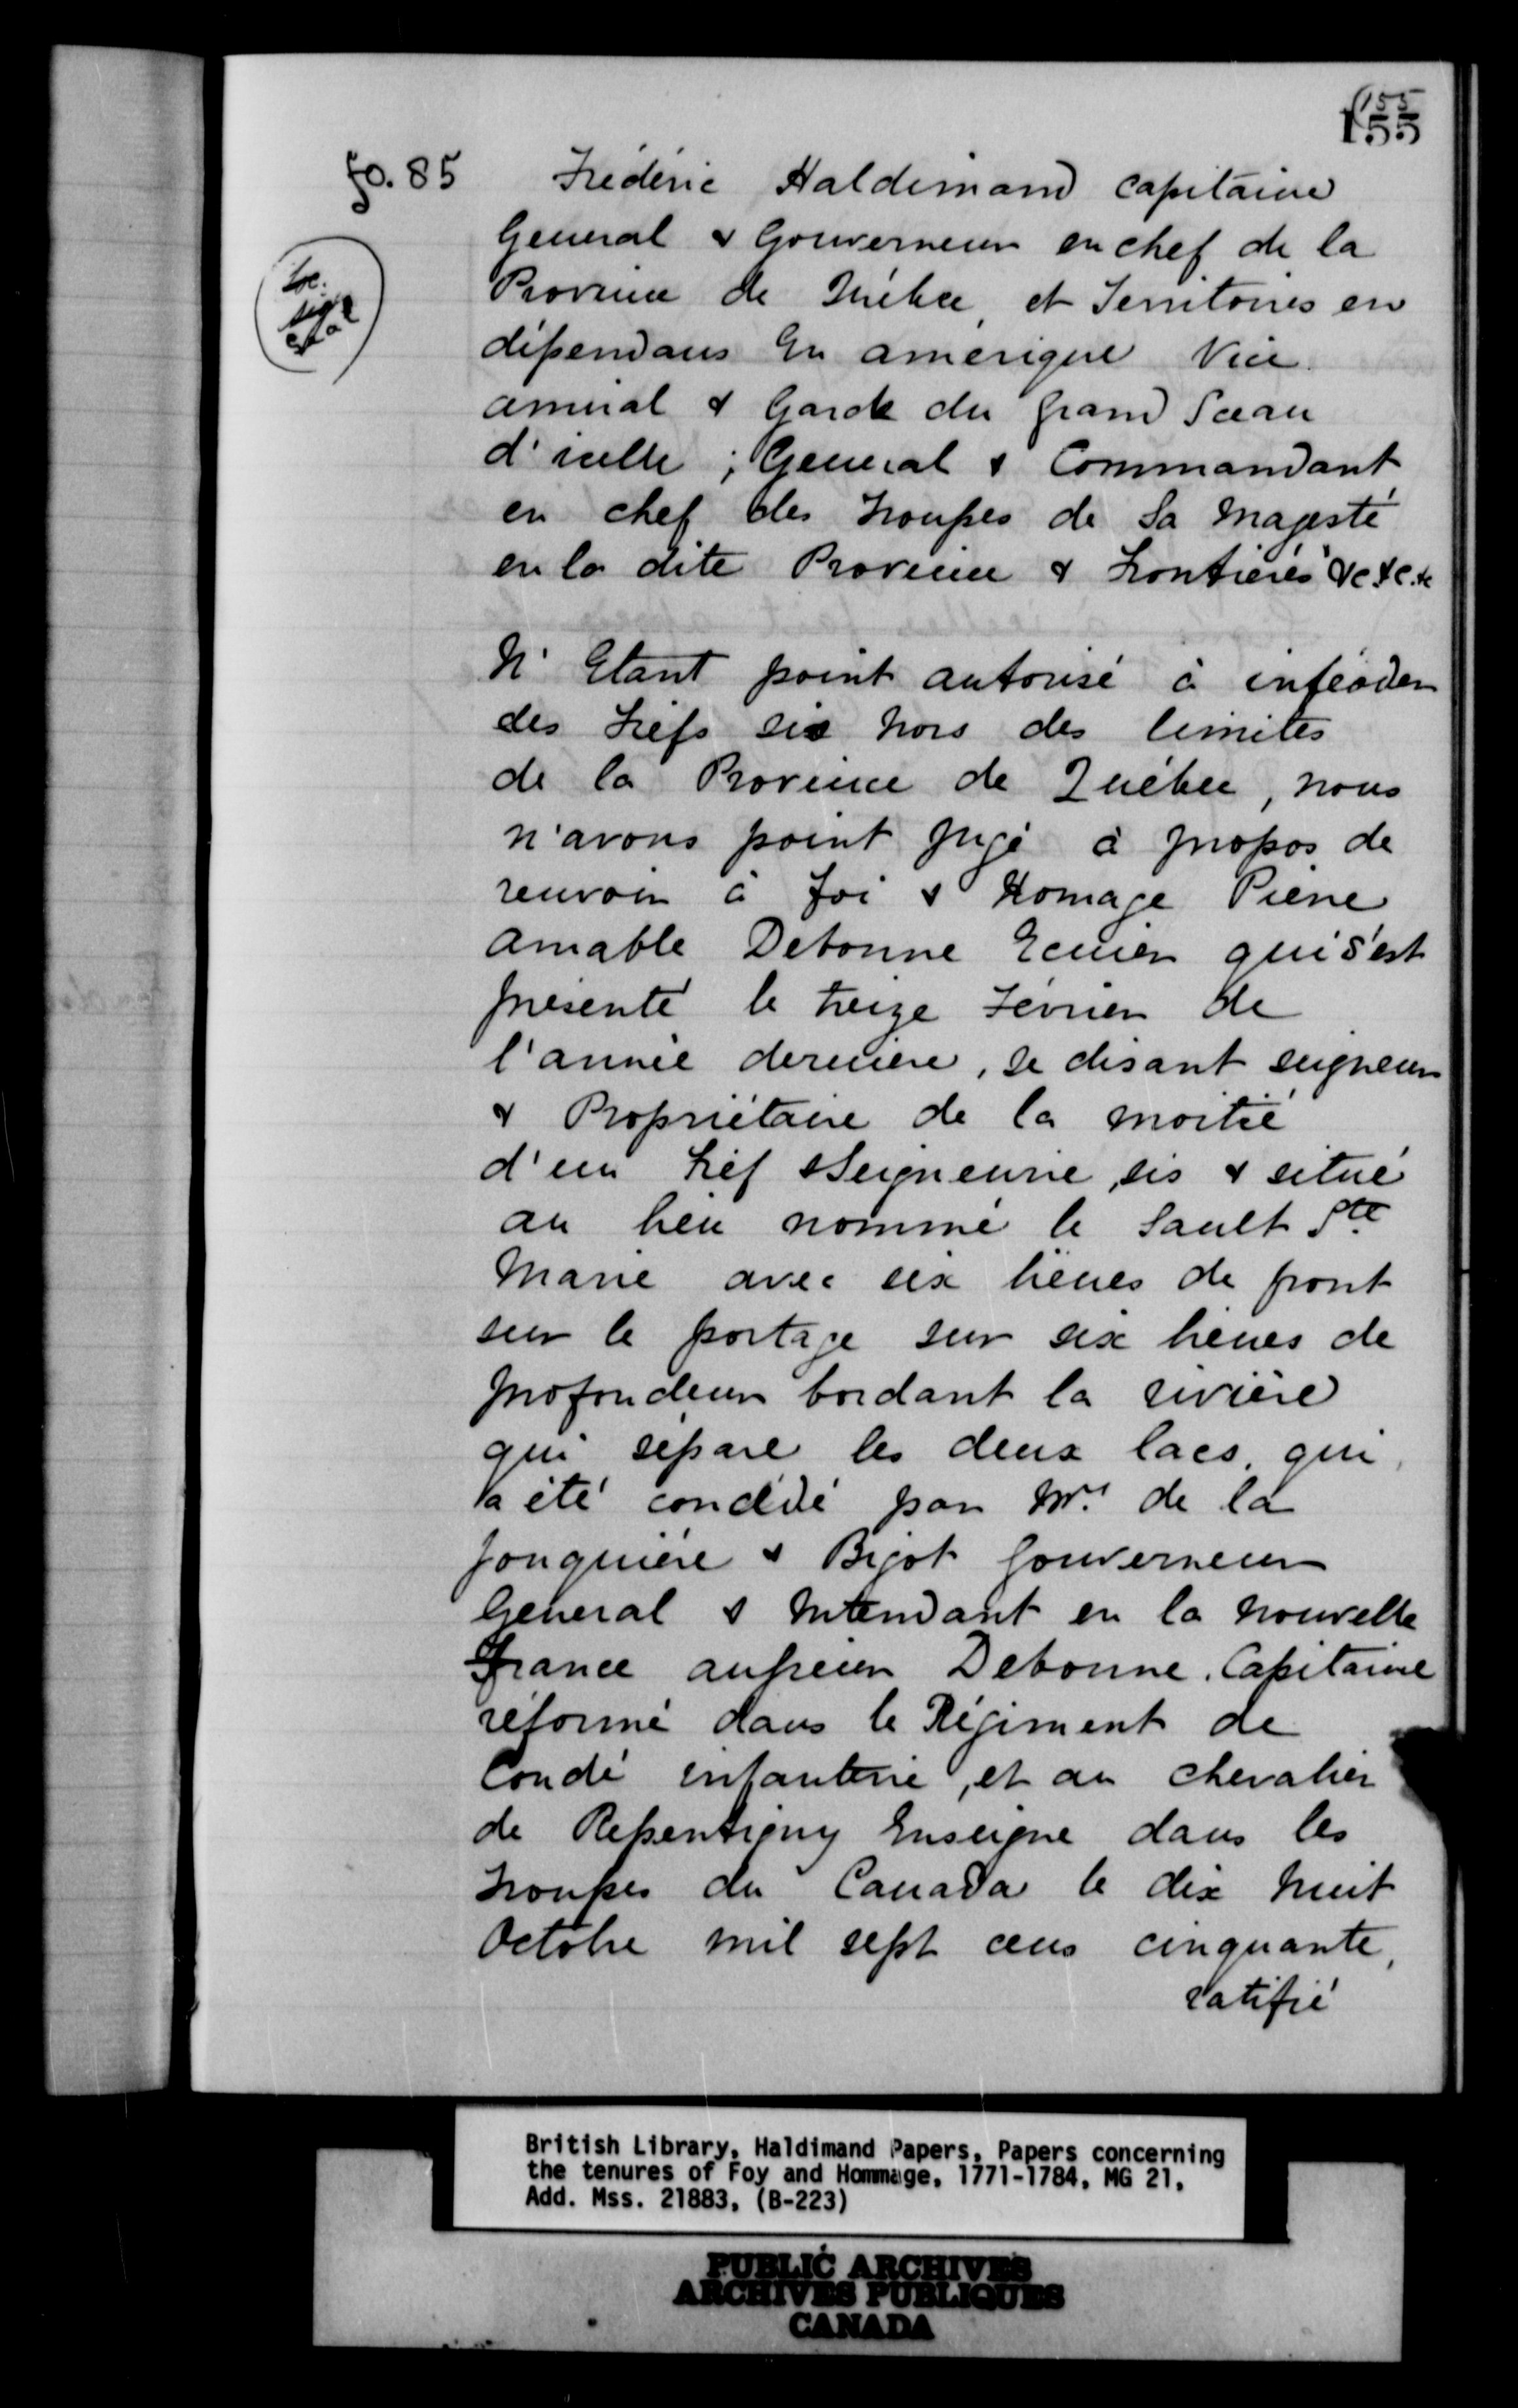 155
155
fo. 85
Frédéric Haldimand Capitaine
General & Gouverneur en chef de la
Province de Québec, et Territoires en
dépendans En amerique Vice
amiral & Garde du grand Sceau
d'icelle ; General & Commandant
en chef des troupes de Sa Majesté
en la dite Province & Frontières &c &c &c
N'Etant point autorisé à inféoder
des Fiefs sis hors des limites
de la Province de Québec, nous
n'avons point jugé à propos de
recevoir à foi & Homage Pierre
amable Debonne Ecuier qui s'est
présenté le treize Février de
l'année dernière, se disant seigneur
& Propriétaire de la moitié
d'un Fief & Seigneurie, sis & situé
au lieu nommé le Sault Ste
Marie avec six lieues de front
sur le portage sur six lieues de
profondeur bordant la rivière
qui sépare les deux lacs, qui
a été concédé par Mrs de la
Jonquière & Bigot Gouverneur
General & Intendant en la Nouvelle
France au sieur Debonne, Capitaine
réformé dans le Régiment de
Condé infanterie, et au chevalier
de Repentigny Enseigne dans les
troupes du Canada le dix huit
Octobre mil sept cens cinquante,
ratifié
British Library, Haldimand Papers, Papers concerning
the tenures of Foy and Hommage, 1771-1784, MG 21,
Add. Mss. 21883, (B-223)
PUBLIC ARCHIVES
ARCHIVES PUBLIQUES
CANADA